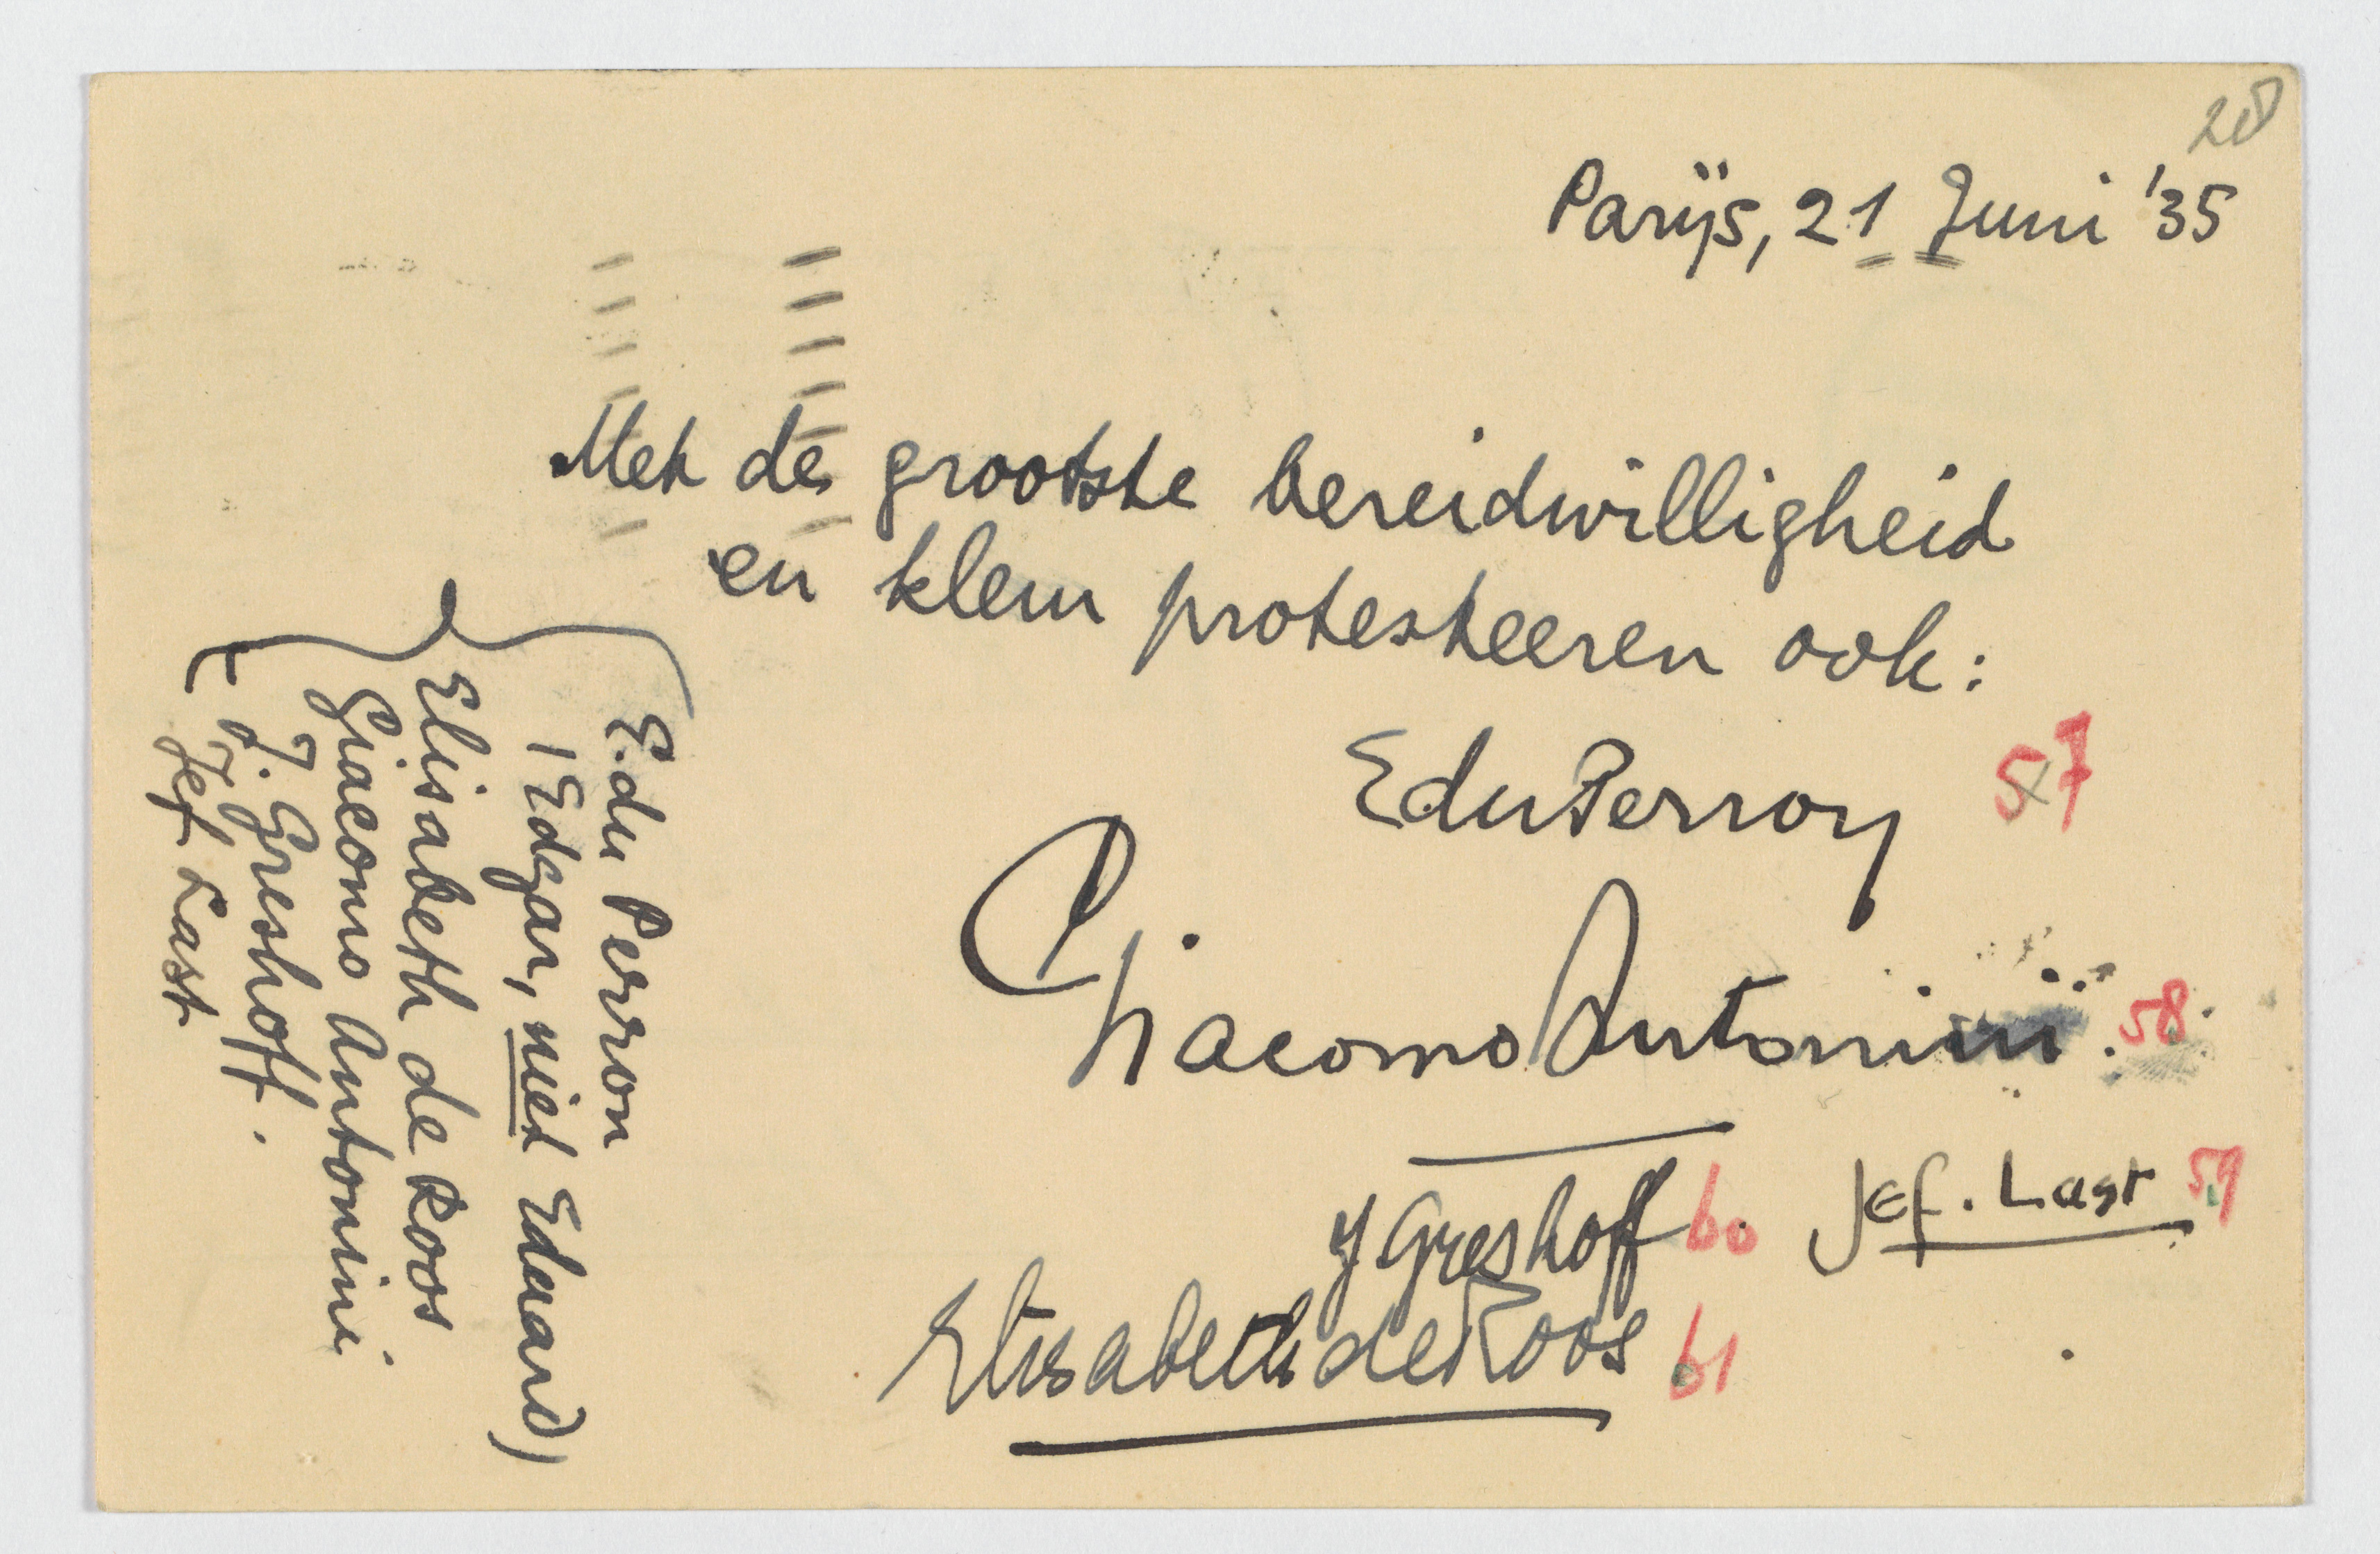 28
Parijs, 21 Juni '35
Met de grootste bereidwilligheid
en klem protesteeren ook:
EduPerron 57
Giacomo Antonini. 58
Jef. Last 59
J Greshoff 60
Elisabeth de Roos 61
E. du Perron
(Edgar, niet Eduard)
Elisabeth de Roos
Giacomo Antonini.
J. Greshoff.
Jef Last